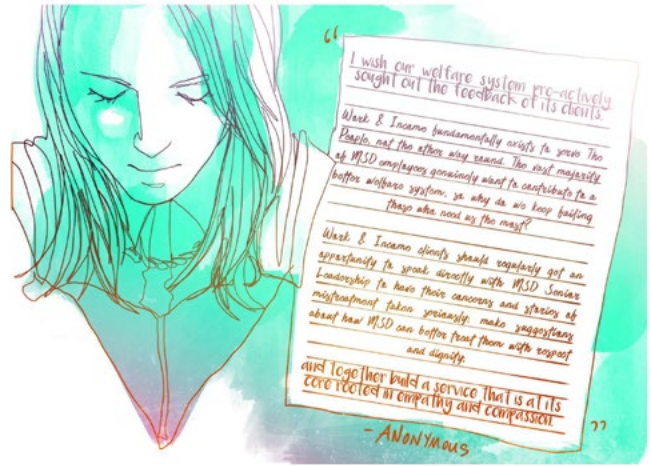 “
I wish our welfare system pro-actively
sought out the feedback of its clients.
Work & Income fundamentally exists to serve The
People, not the other way round. The vast majority
of MSD employees genuinely want to contribute to a
better welfare system, so why do we keep failing
those who need us the most?
Work & Income clients should regularly get an
opportunity to speak directly with MSD Senior
Leadership to have their concerns and stories of
mistreatment taken seriously, make suggestions
about how MSD can better treat them with respect
and dignity.
and together build a service that is at its
core rooted in empathy and compassion.
”
- ANONYMOUS